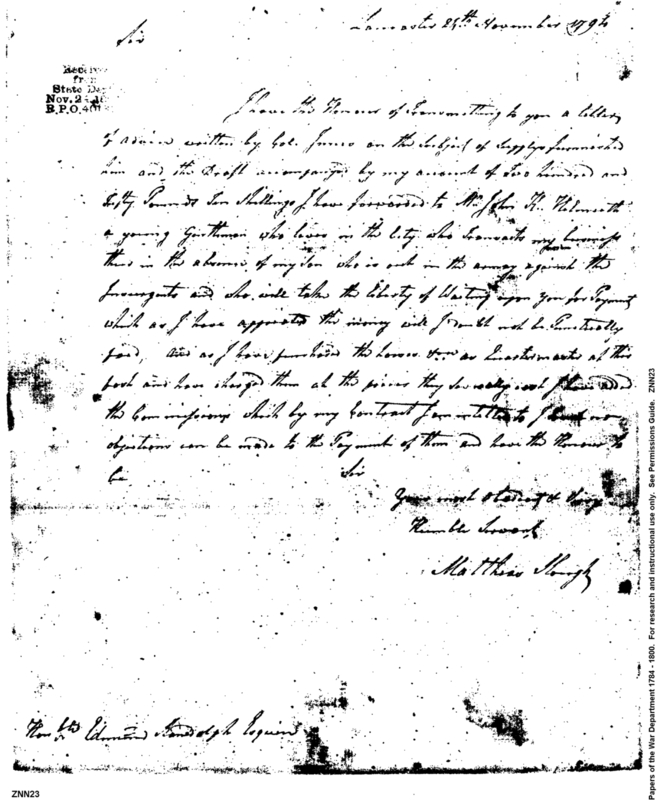 Lancaster 25th November 1794
Sir
Receive
from
State De
Nov. 2
R.P.O. 401
I have the Honour of Transmitting to you a letter
of advice written by Col. on the Subject of Supplys furnished
him and the Draft accompanyed by my account of Two hundred and
fifty Pounds Ten Shillings I have forwarded to Mr. John K. Helmuth
a young Gentleman who lives in the City who Transacts my business
there in the absence of my Son who is out in the army against the
Insurgents and who will take the liberty of Waiting upon you for Payment
which as I have the money will I doubt not be Punctually
paid, and as I have purchased the horses as Quartermaster at this
post and have charged them at the prices they cost I have
the Commissions which by my Contract I am intitled to I no
objections can be made to the Payment of them and have the Honour to
be Sir
Your most Obedient &
Humble Servant
Matthias Slough
Honble Edmund Randolph Esquire
ZNN23
Papers of the War Department 1784 - 1800. For research and instructional use only. See Permissions Guide. ZNN23